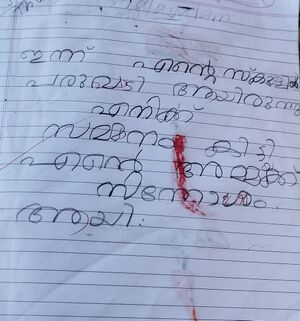 ഇന്ന് എൻ്റെ സ്കൂളിൽ
പരുപാടി ആയിരുന്നു
എനിക്ക്
സമ്മാനം കിട്ടി
എൻ്റെ അമ്മക്ക്
സന്തോഷം
ആയി.